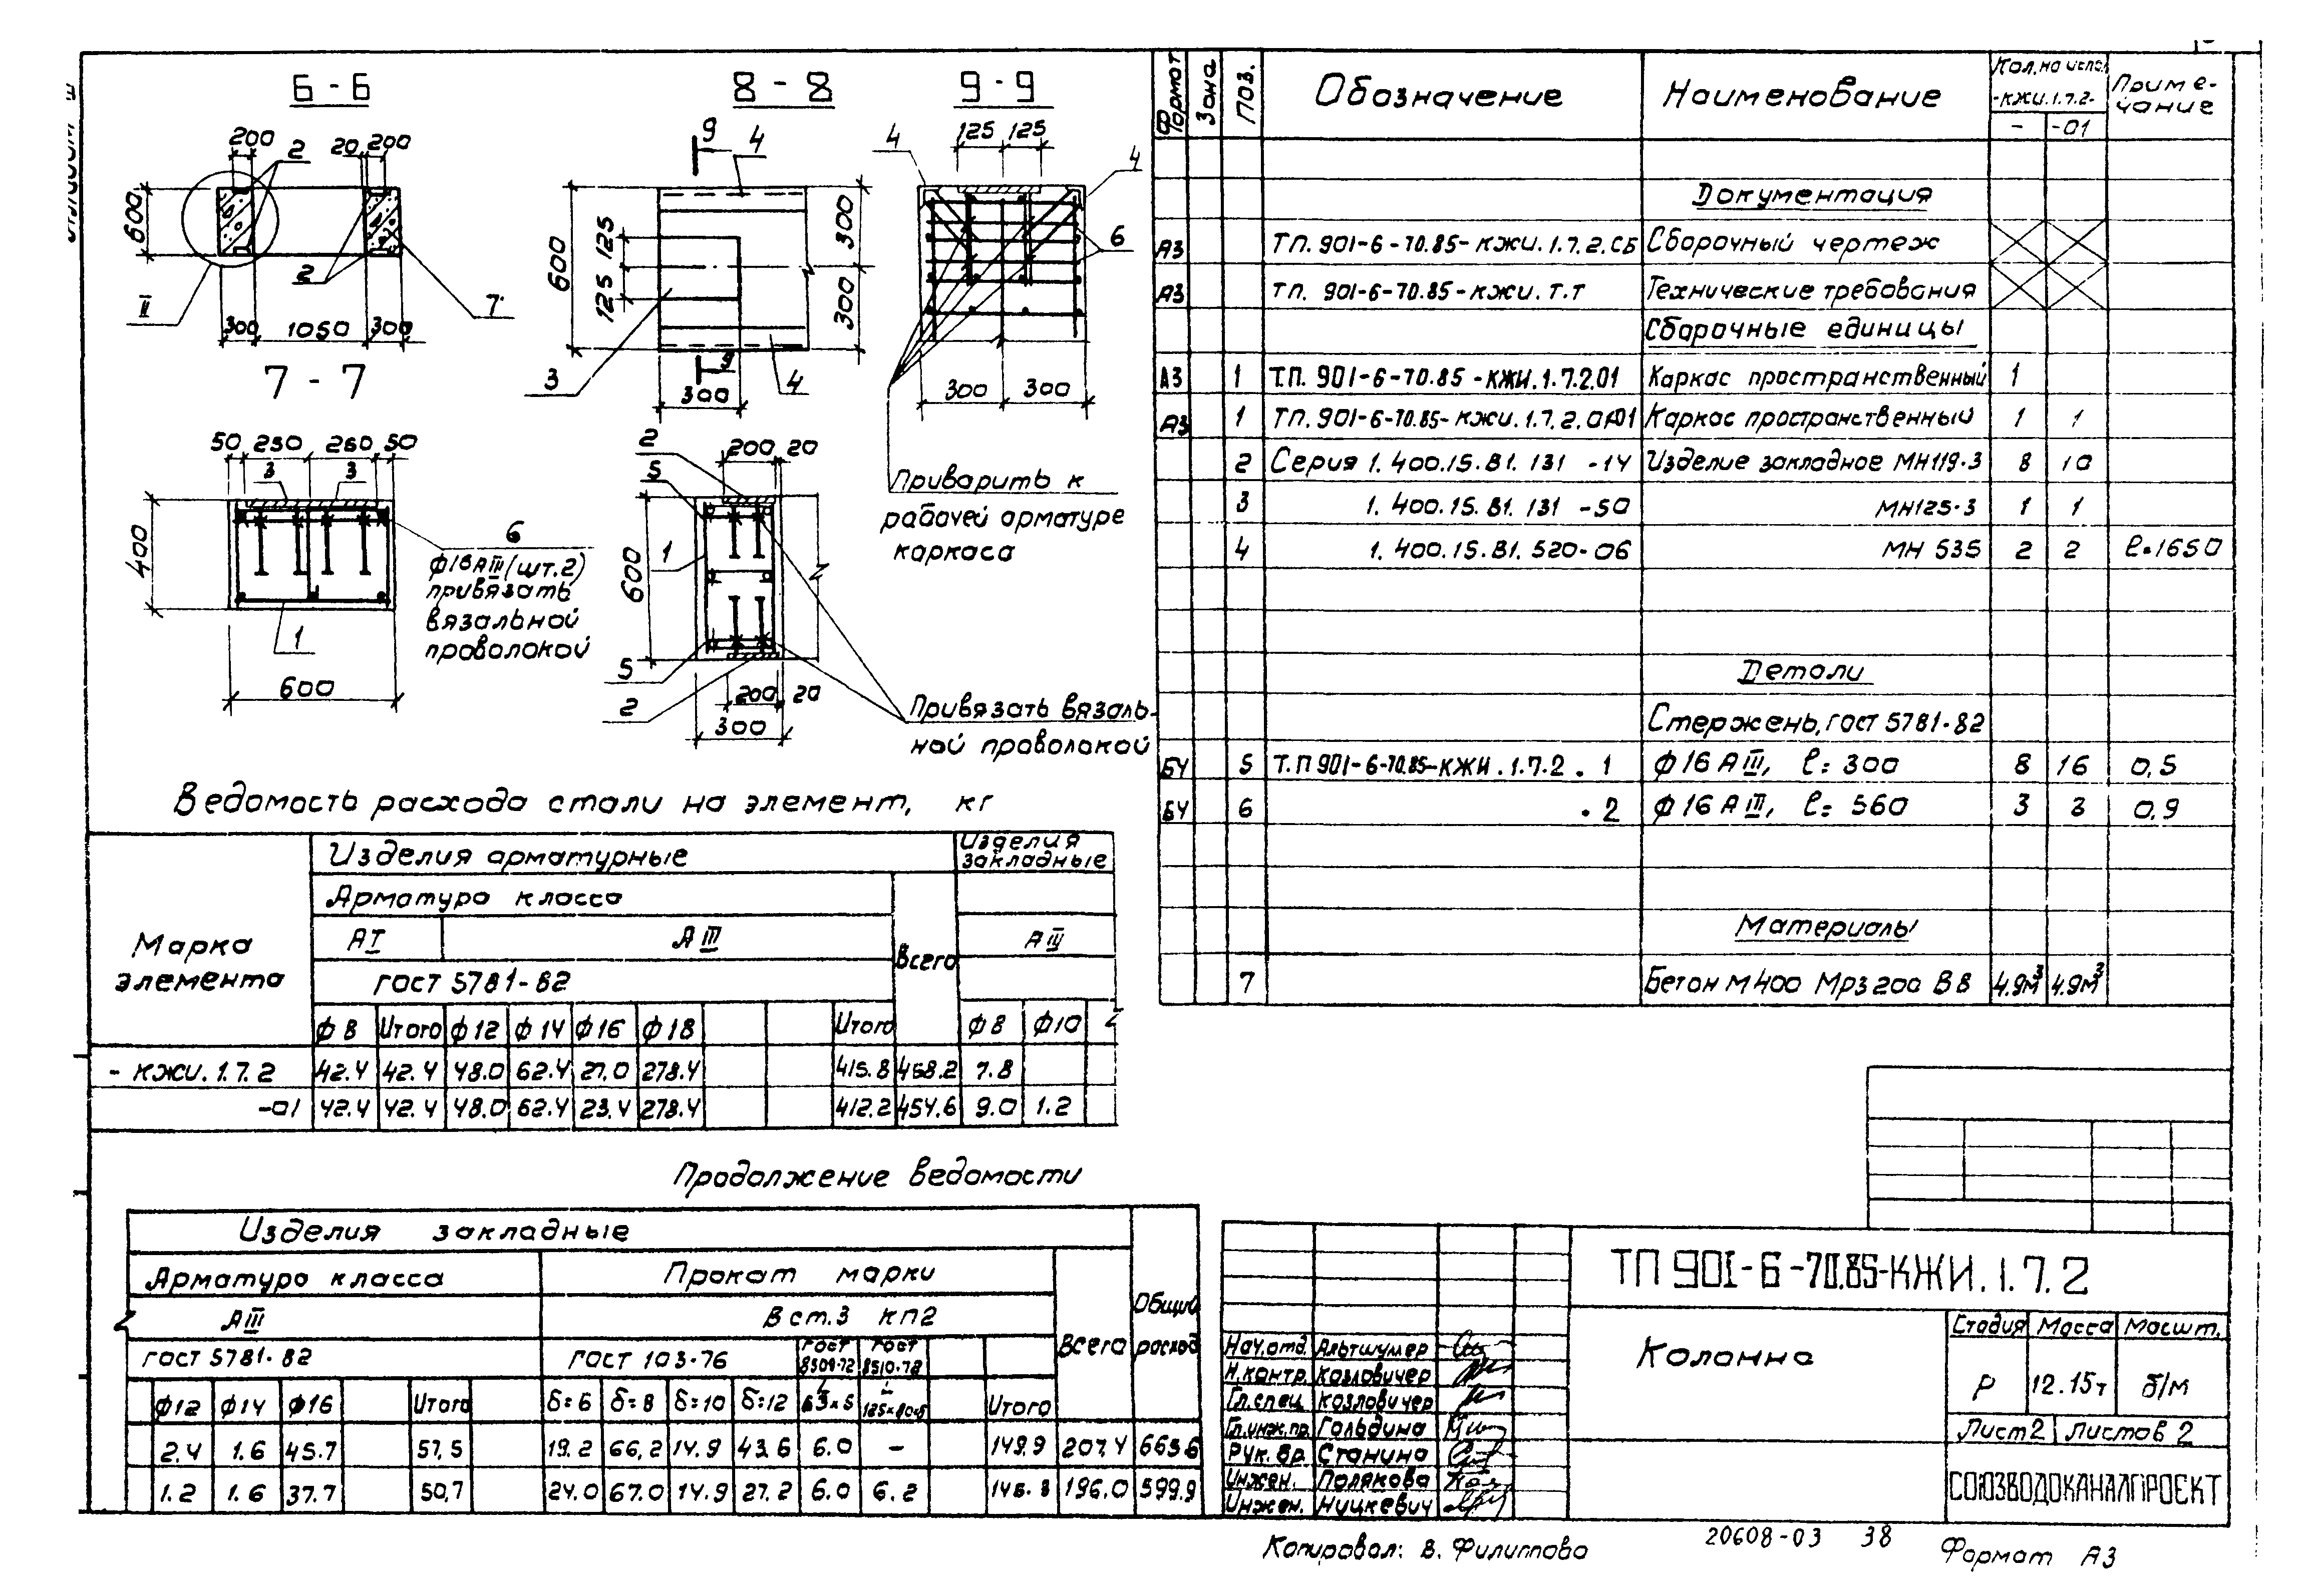 Б - Б
200
2
20
200
600
2
II
7
300
1050
300
8 - 8
9
4
600
125
125
300
300
3
9
4
300
9 - 9
125
125
4
4
6
300
300
Приварить к
рабочей арматуре
каркаса
7 - 7
50
250
260
50
3
3
400
6
ф16АIII (шт.2)
привязать
вязальной
проволокой
1
600
2
200
20
5
1
600
5
2
200
20
300
Привязать вязаль-
ной проволокой
Ведомость расхода стали на элемент, кг
Марка элемента
Изделия арматурные
Изделия закладные
Арматура класса
Всего
АI
АIII
АIII
ГОСТ 5781-82
ф8 Итого ф12 ф14 ф16 ф18 Итого ф8 ф10
- КЖИ.1.7.2 42.4 42.4 48.0 62.4 27.0 278.4 415.8 458.2 7.8
-01 42.4 42.4 48.0 62.4 23.4 278.4 412.2 454.6 9.0 1.2
Продолжение ведомости
Изделия закладные
Общий расход
Арматура класса
Прокат марки
Всего
АIII
В ст.3 кп2
ГОСТ 5781-82
ГОСТ 103-76
ГОСТ 8509-72
ГОСТ 8510-72
ф12 ф14 ф16 Итого δ=6 δ=8 δ=10 δ=12 63×5 Итого
2.4 1.6 45.7 57,5 19.2 66,2 14.9 43.6 6.0 - 149.9 207.4
1.2 1.6 37.7 50,7 24.0 67.0 14.9 27.2 6.0 6.2 196.0 599.9
Формат Зона Поз. Обозначение Наименование Кол. на испол. -КЖИ.1.7.2- Примечание
- -01
Документация
А3 ТП.901-6-70.85-КЖИ.1.7.2.СБ Сборочный чертеж
А3 ТП. 901-6-70.85-КЖИ.Т.Т Технические требования
Сборочные единицы
А3 1 Т.П. 901-6-70.85-КЖИ.1.7.2.01 Каркас пространственный 1
А3 1 ТП.901-6-70.85-КЖИ.1.7.2.01-01 Каркас пространственный 1 1
2 Серия 1.400.15.В1.131 -14 Изделие закладное МН119-3 8 10
3 1.400.15.В1.131 -50 МН125-3 1 1
4 1.400.15.В1.520-06 МН 535 2 2 ℓ=1650
Детали
Стержень, ГОСТ 5781-82
БЧ 5 Т.П 901-6-70.85-КЖИ.1.7.2.1 ф16АIII, ℓ= 300 8 16 0,5
БЧ 6 .2 ф16АIII, ℓ= 560 3 3 0,9
Материалы
7 Бетон М400 Мрз200 В8 4.9м³ 4.9м³
ТП 901-6-70.85-КЖИ.1.7.2
Нач.отд. Альтшулер
Н.контр. Козловичер
Гл.спец. Козловичер
Гл.инж.пр. Гольдина
Рук.бр. Станина
Инжен. Полякова
Инжен. Нуцкевич
Колонна
Стадия Масса Масшт.
Р 12.15т б/м
Лист 2 Листов 2
СОЮЗВОДОКАНАЛПРОЕКТ
Копировал: В. Филиппова
20608-03 38
Формат А3